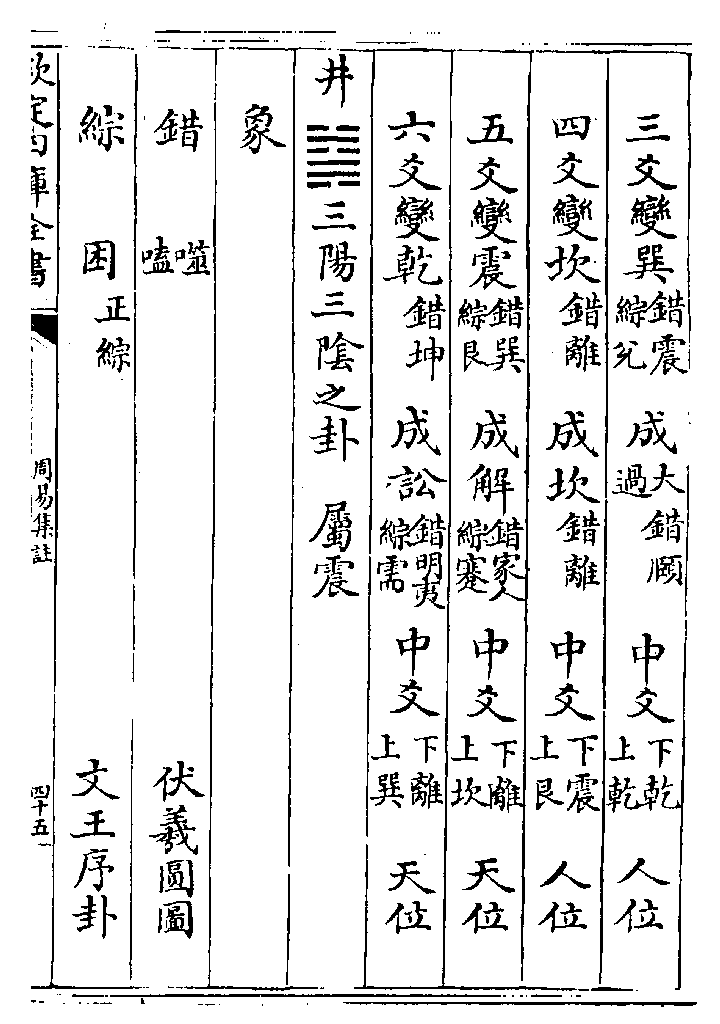 三爻變巽 錯震綜兌 成大過 錯頤 中爻 下乾上乾 人位
四爻變坎 錯離 成坎 錯離 中爻 下震上艮 人位
五爻變震 錯巽綜艮 成解 錯家人綜蹇 中爻 下離上坎 天位
六爻變乾 錯坤 成訟 錯明夷綜需 中爻 下離上巽 天位
井䷯三陽三陰之卦 屬震
象
錯 噬嗑 伏羲圓圖
綜 困 正綜 文王序卦
欽定四庫全書 周易集註 四十五